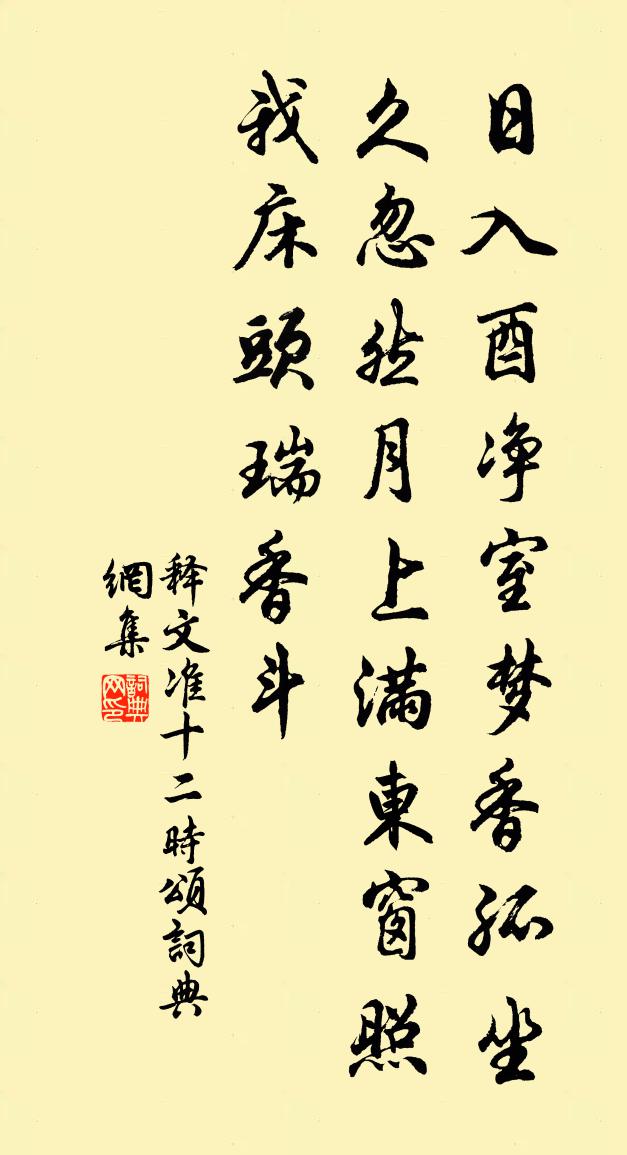 日入酉净室梦香孤坐
久忽然月上满東窗照
我床頭瑞香斗
释文准十二時頌詞典
網集
詞典网印